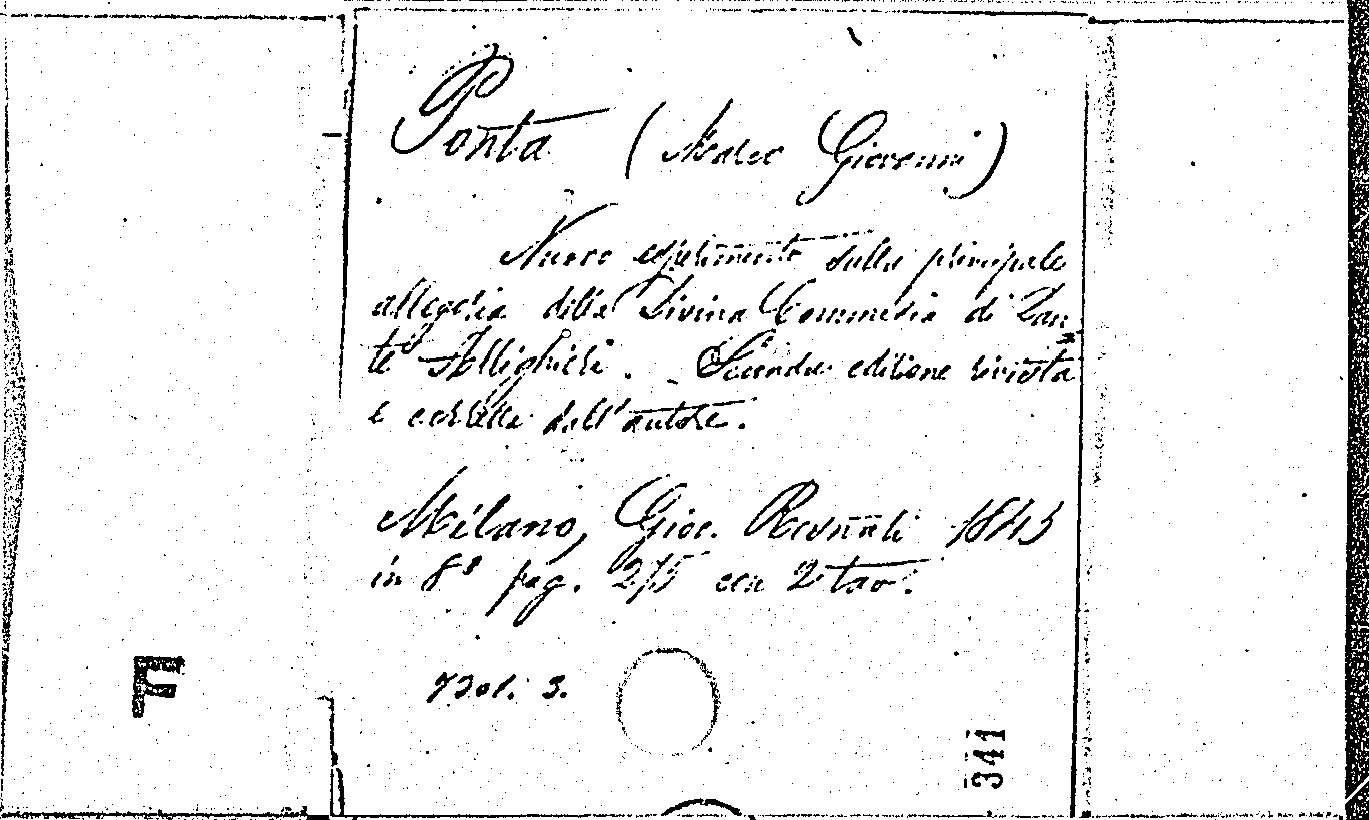 Ponta (Marco Giovanni)
Nuovo esperimento sulla principale
allegoria della Divina Commedia di Dan-
te Allighieri. - Seconda edizione rivista
e corretta dall'autore.
Milano, Gioc. 1845
in 8° pag. 275 con 2 tav.
3.
F
341